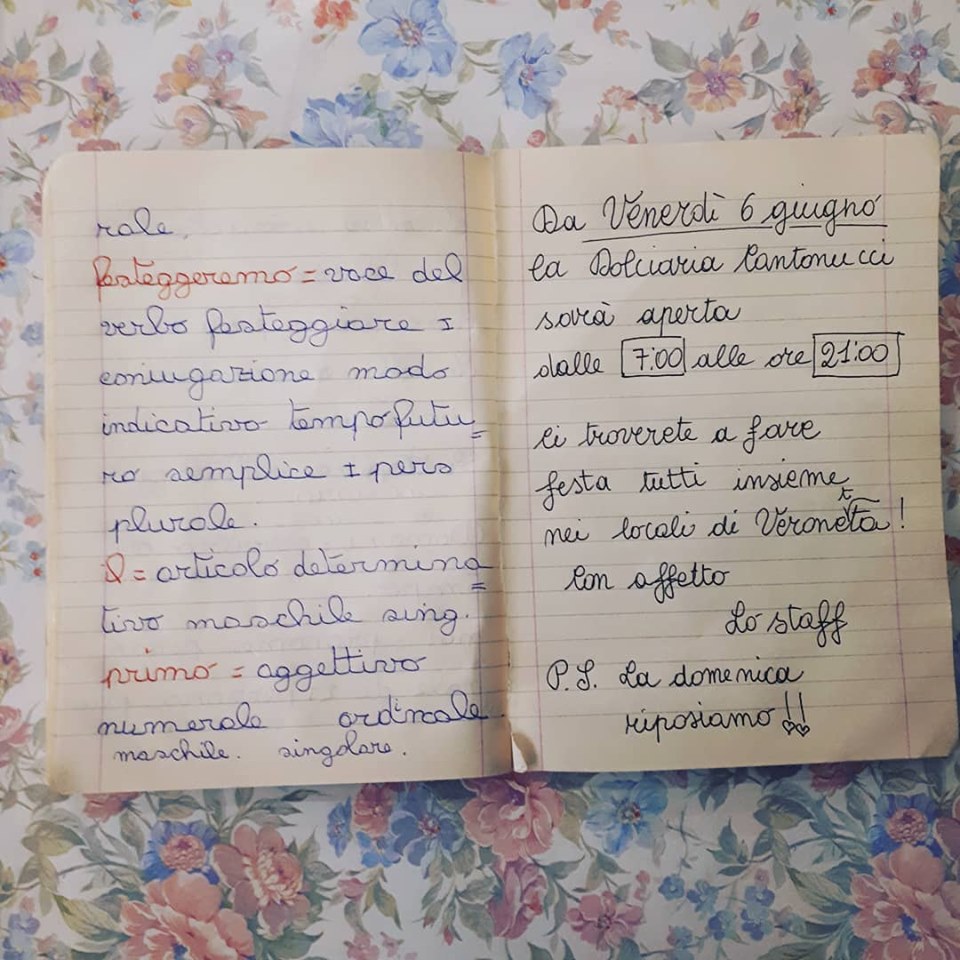 rale.
festeggeremo = voce del
verbo festeggiare I
coniugazione modo
indicativo tempo futu=
ro semplice I pers
plurale.
Il = articolo determina=
tivo maschile sing.
primo = aggettivo
numerale ordinale.
maschile. singolare.
Da Venerdì 6 giugno
la Dolciaria Cantonucci
sarà aperta
dalle 7:00 alle ore 21:00
ci troverete a fare
festa tutti insieme
nei locali di Veronetta!
Con affetto
Lo staff
P.S. La domenica
riposiamo!!